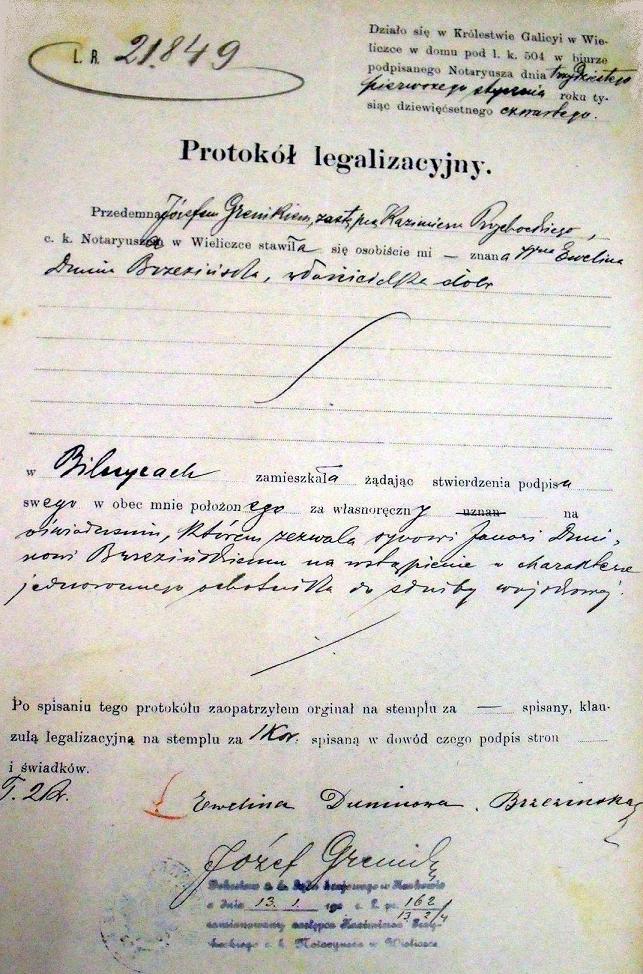 L. R. 21.849
Działo się w Królestwie Galicyi w Wie-
liczce w domu pod l. k. 504 w biurze
podpisanego Notaryusza dnia trzydziestego
pierwszego stycznia roku ty-
siąc dziewięćsetnego czwartego.
Protokół legalizacyjny.
Przedemną Józefem zastępcą Kazimierza Przybockiego,
c. k. Notaryusza w Wieliczce stawiła się osobiście mi — znana Ewelina
Dunin Brzezińska, właścicielka dóbr
w zamieszkała żądając stwierdzenia podpisu
swego w obec mnie położonego za własnoręczny uznan na
oświadczeniu, którem zezwala synowi Duni-
nowi Brzezińskiemu na wstąpienie w charakterze
jednorocznego ochotnika do służby wojskowej.
Po spisaniu tego protokółu zaopatrzyłem orginał na stemplu za — spisany, klau-
zulą legalizacyjną na stemplu za 1 Kor. spisaną w dowód czego podpis stron
i świadków.
Ewelina Duninowa Brzezińska
Józef
Dekretem c. k. Sądu krajowego w Krakowie
z dnia 13. 1. 162
13. 2/4
zastępca Kazimierza Przy-
bockiego c. k. Notaryusza w Wieliczce